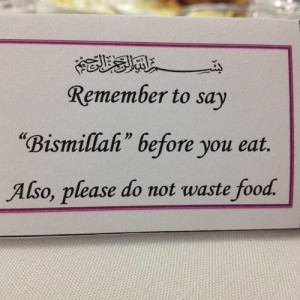 بسم الله الرحمن الرحيم
Remember to say
“Bismillah” before you eat.
Also, please do not waste food.